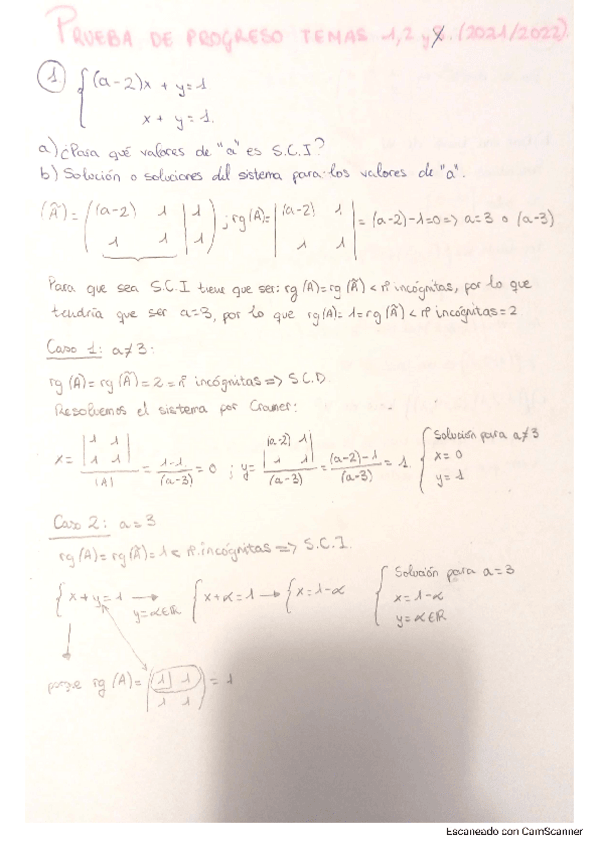 PRUEBA DE PROGRESO TEMAS 1, 2 y 8. (2021/2022)
1. { (a-2)x + y = 1
x + y = 1.
a) ¿Para qué valores de "a" es S.C.I?
b) Solución o soluciones del sistema para los valores de "a".
(Â) = ( (a-2) 1 | 1 ; 1 1 | 1 ) ; rg(A) = | (a-2) 1 ; 1 1 | = (a-2)-1=0 => a=3 o (a-3)
Para que sea S.C.I tiene que ser: rg(A)=rg(Â) < nº incógnitas, por lo que
tendría que ser a=3, por lo que rg(A)=1=rg(Â) < nº incógnitas=2
Caso 1: a≠3:
rg(A)=rg(Â)=2=nº incógnitas => S.C.D
Resolvemos el sistema por Cramer:
x = | 1 1 ; 1 1 | / |A| = 1-1 / (a-3) = 0 ; y = | (a-2) 1 ; 1 1 | / (a-3) = (a-2)-1 / (a-3) = 1. { Solución para a≠3
x=0
y=1
Caso 2: a=3
rg(A)=rg(Â)=1 < nº incógnitas => S.C.I.
{ x+y=1 → y=α∈ℝ { x+α=1 → { x=1-α { Solución para a=3
x=1-α
y=α∈ℝ
porque rg(A) = | 1 1 ; 1 1 | = 1
Escaneado con CamScanner